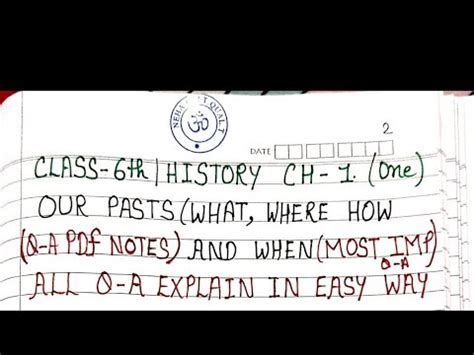 2
DATE
CLASS-6th | HISTORY CH-1 (One)
OUR PASTS (WHAT, WHERE HOW
(Q-A PDf NOTES) AND WHEN (MOST IMP)
Q-A
ALL Q-A EXPLAIN IN EASY WAY